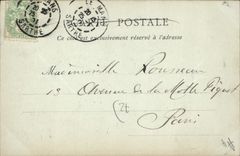 LE MANS
SARTHE
POSTALE
Ce côté est exclusivement réservé à l'adresse
Mademoiselle Rousseau
13 Avenue de la Motte Piquet
Paris